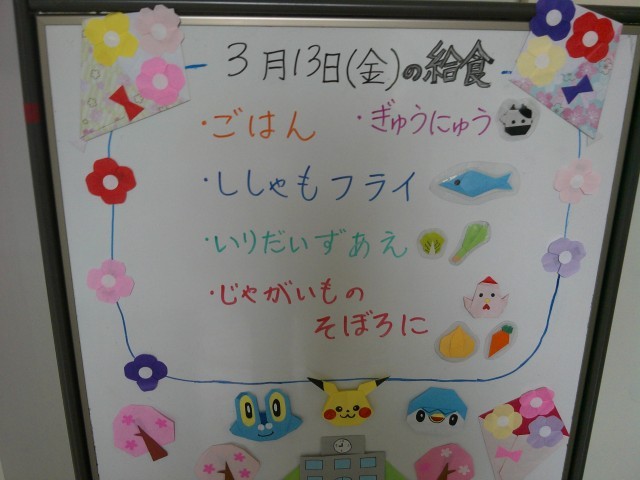 3月13日(金)の給食
・ごはん ・ぎゅうにゅう
・ししゃもフライ
・いりだいずあえ
・じゃがいもの
そぼろに